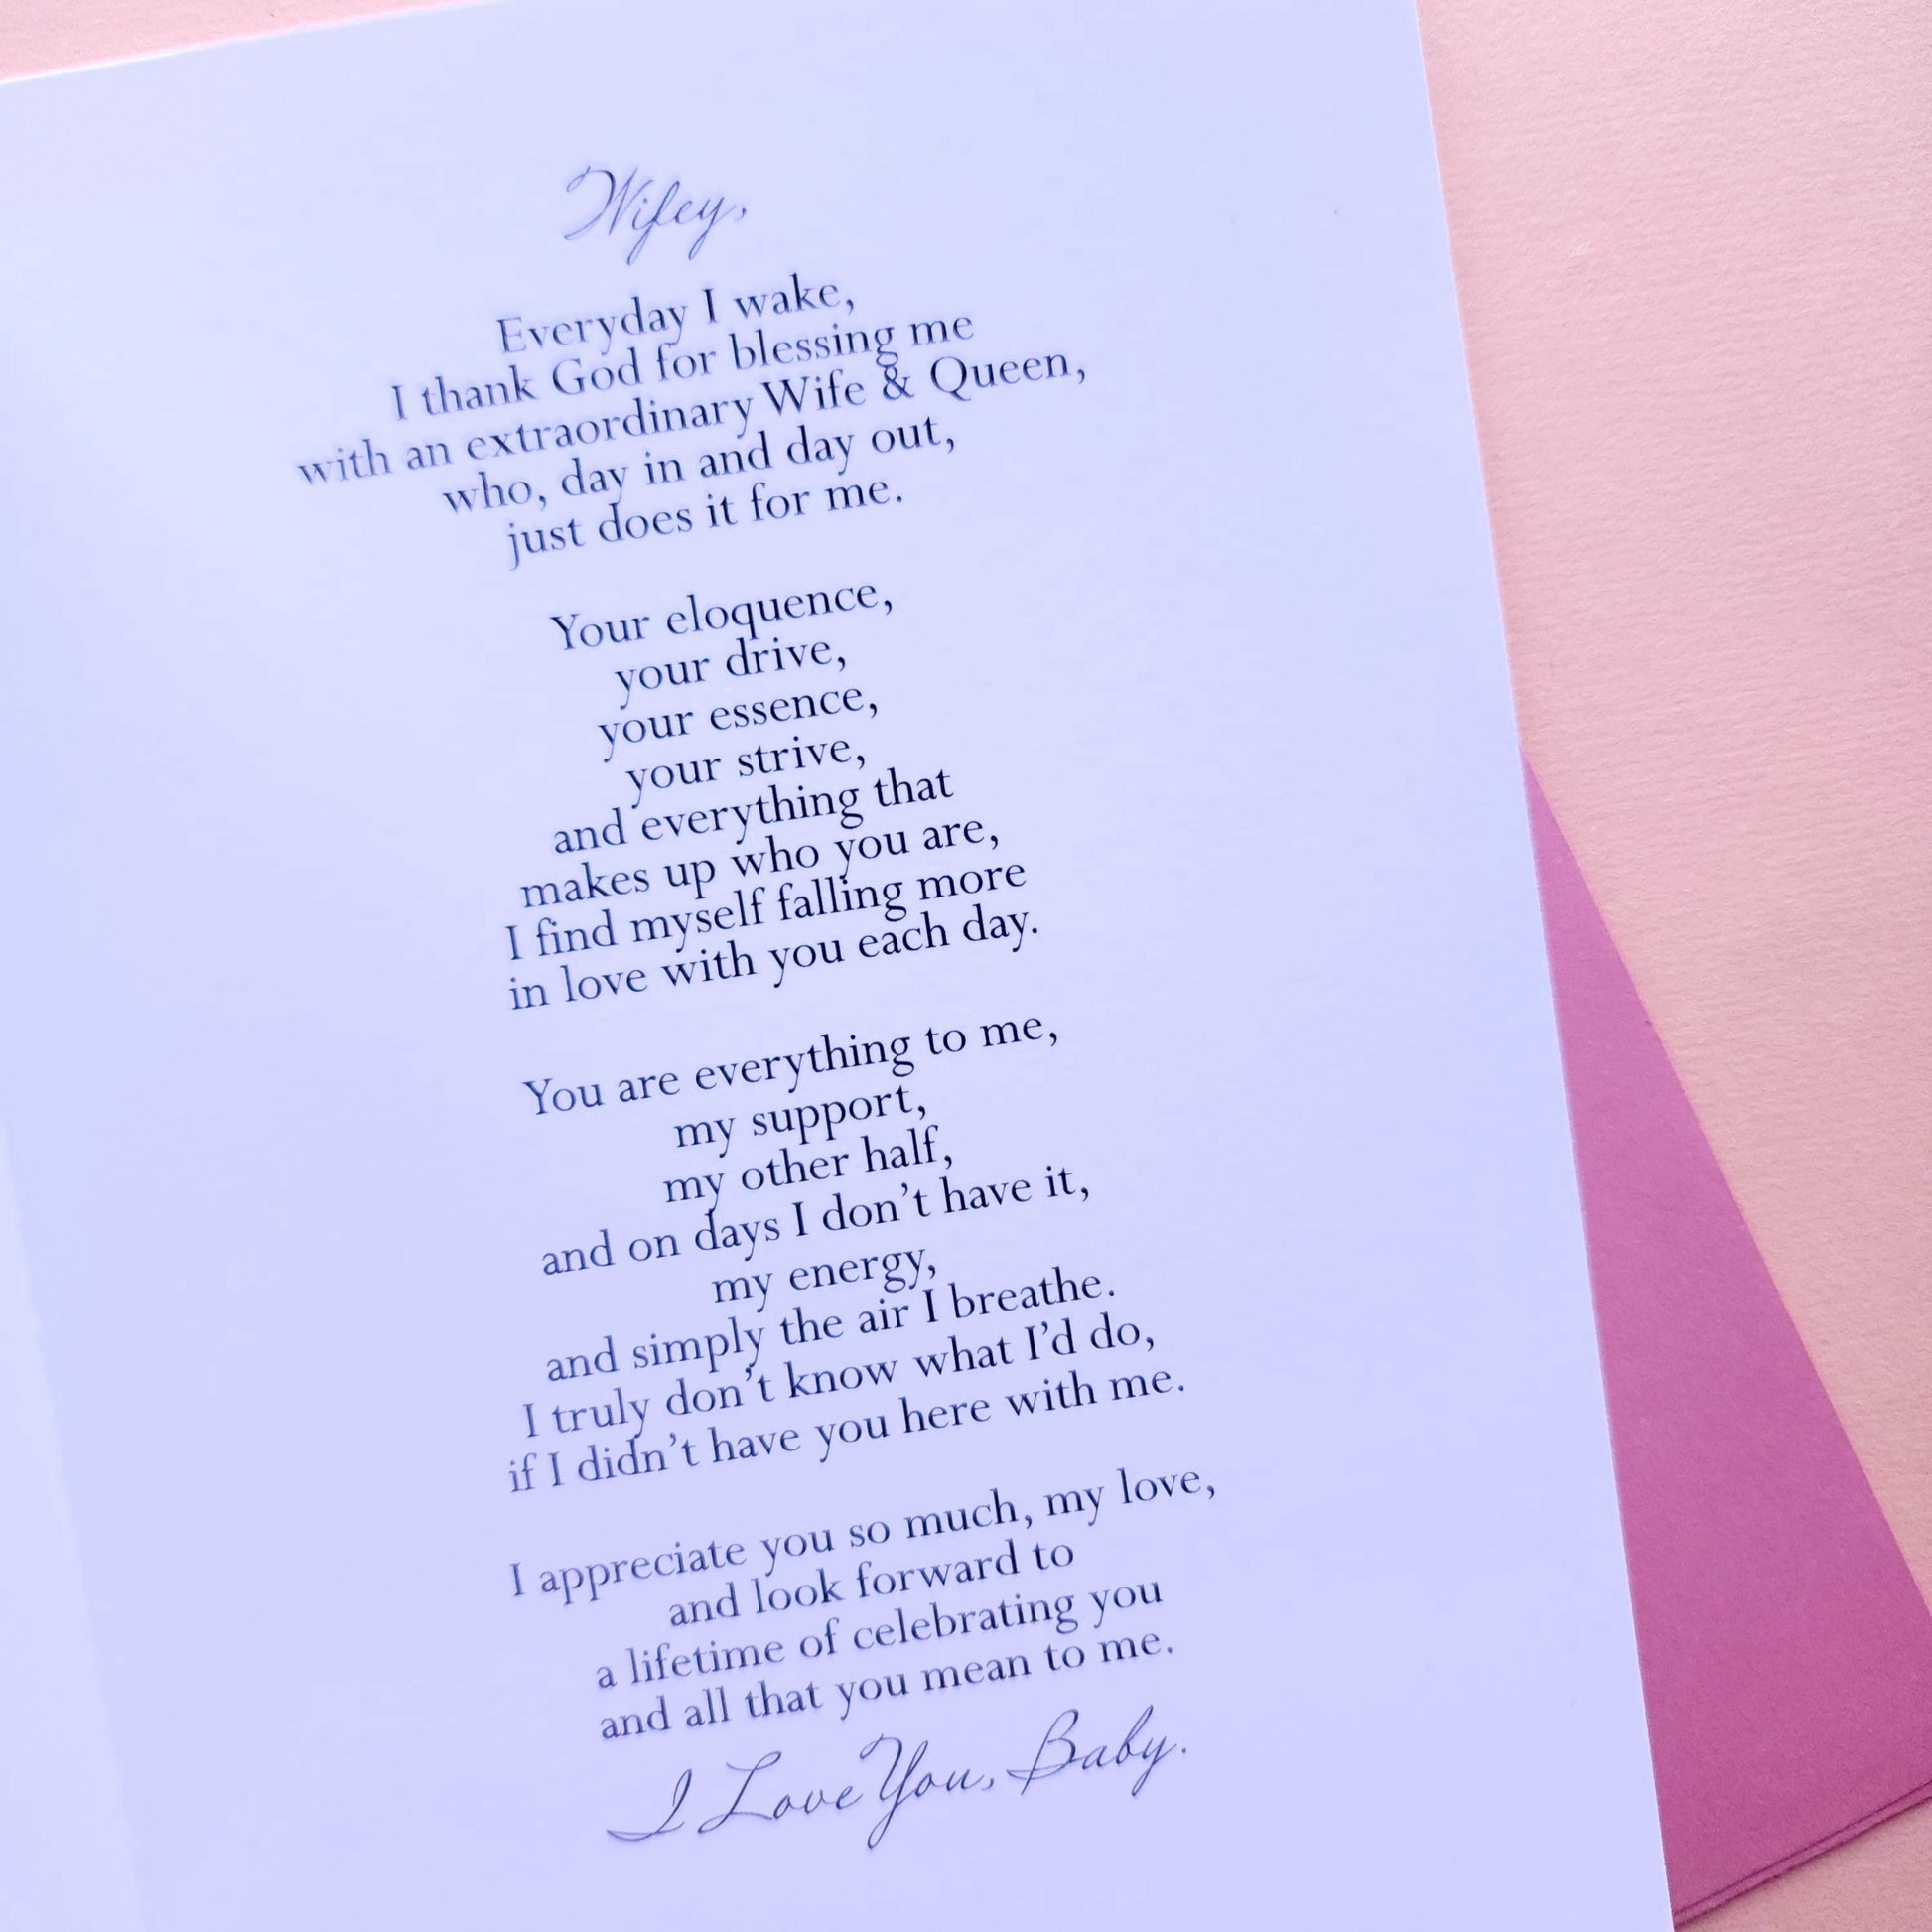 Wifey,
Everyday I wake,
I thank God for blessing me
with an extraordinary Wife & Queen,
who, day in and day out,
just does it for me.
Your eloquence,
your drive,
your essence,
your strive,
and everything that
makes up who you are,
I find myself falling more
in love with you each day.
You are everything to me,
my support,
my other half,
and on days I don't have it,
my energy,
and simply the air I breathe.
I truly don't know what I'd do,
if I didn't have you here with me.
I appreciate you so much, my love,
and look forward to
a lifetime of celebrating you
and all that you mean to me.
I Love You, Baby.